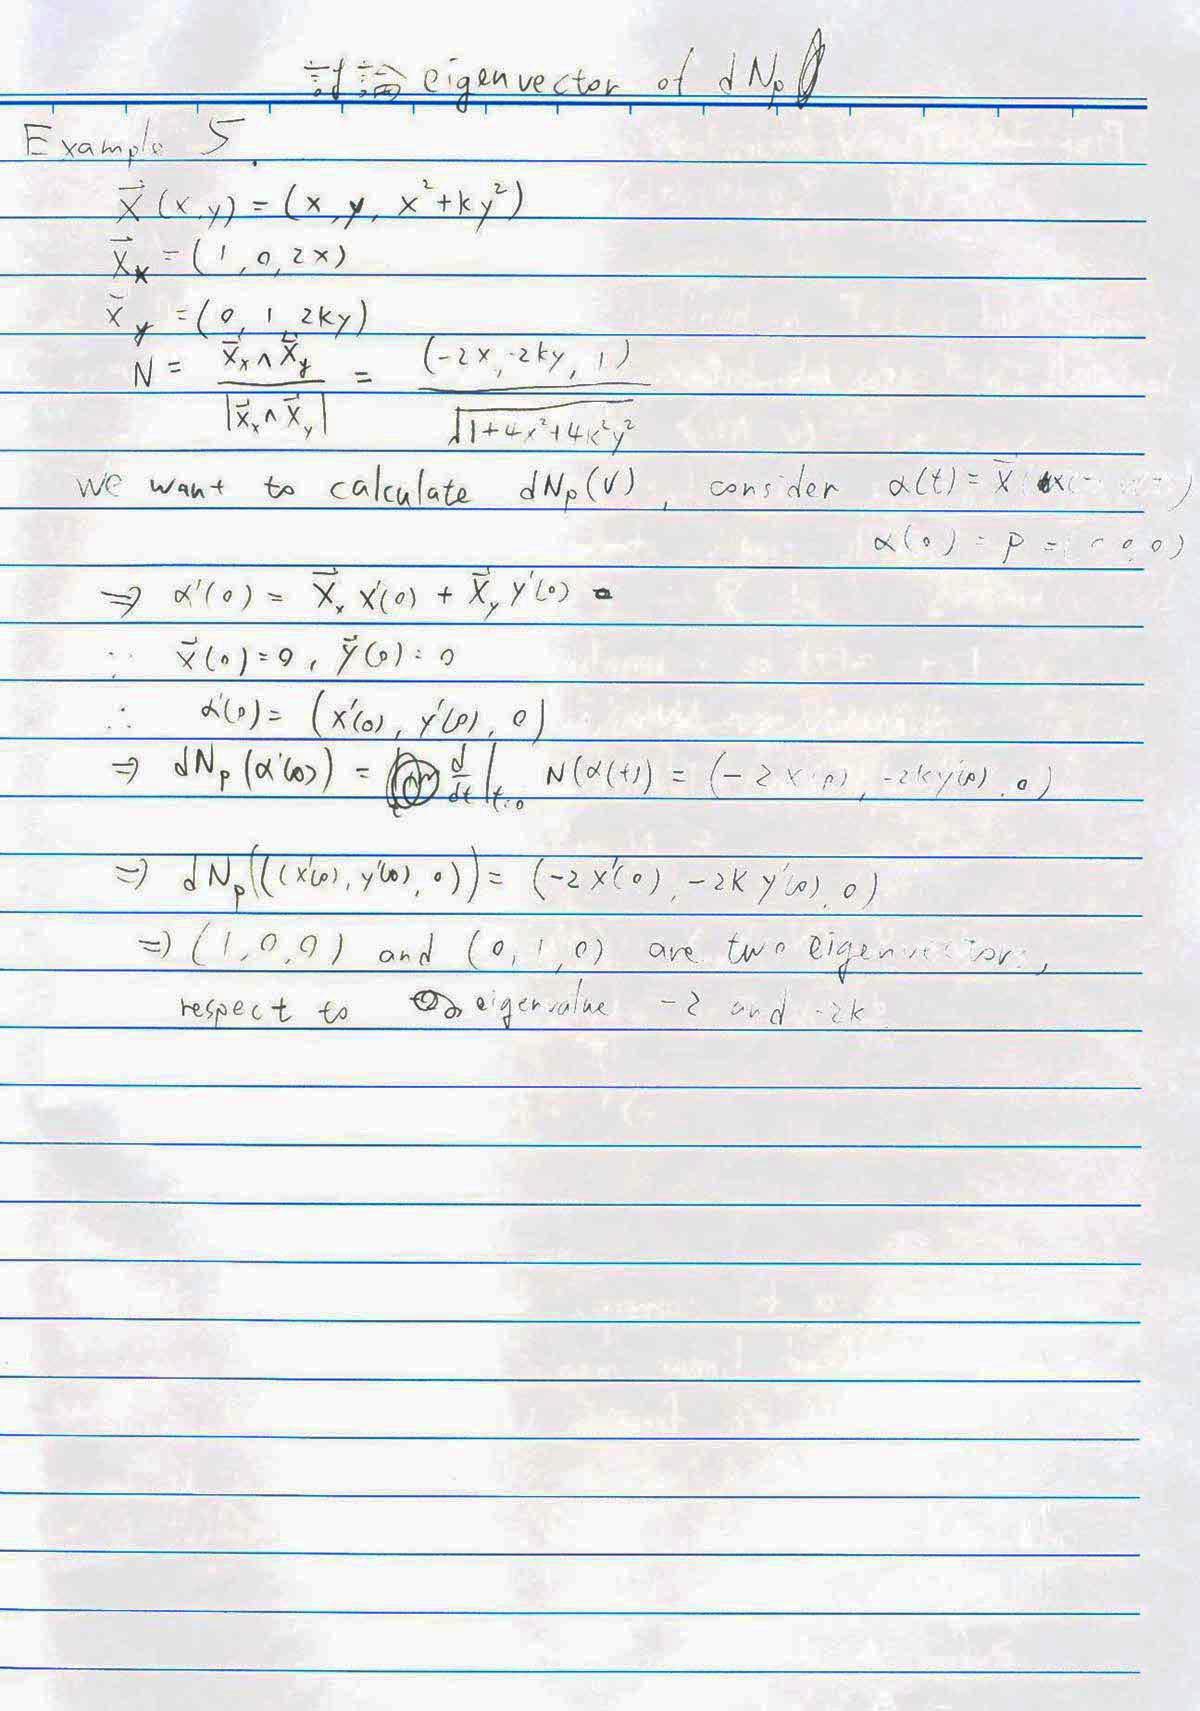 討論 eigenvector of dNₚ
Example 5.
X⃗(x,y) = (x, y, x²+ky²)
X⃗ₓ = (1, 0, 2x)
X⃗_y = (0, 1, 2ky)
N = X⃗ₓ∧X⃗_y / |X⃗ₓ∧X⃗_y| = (-2x, -2ky, 1) / √1+4x²+4k²y²
we want to calculate dNₚ(v), consider α(t) = X⃗(x
α(0) = p = (0,0,0)
⇒ α'(0) = X⃗ₓ x'(0) + X⃗_y y'(0)
∵ x⃗(0)=0, y⃗(0)=0
∴ α'(0) = (x'(0), y'(0), 0)
⇒ dNₚ(α'(0)) = d/dt|t=0 N(α(t)) = (-2x'(0), -2ky'(0), 0)
⇒ dNₚ((x'(0), y'(0), 0)) = (-2x'(0), -2k y'(0), 0)
⇒ (1,0,0) and (0,1,0) are two eigenvectors,
respect to eigenvalue -2 and -2k